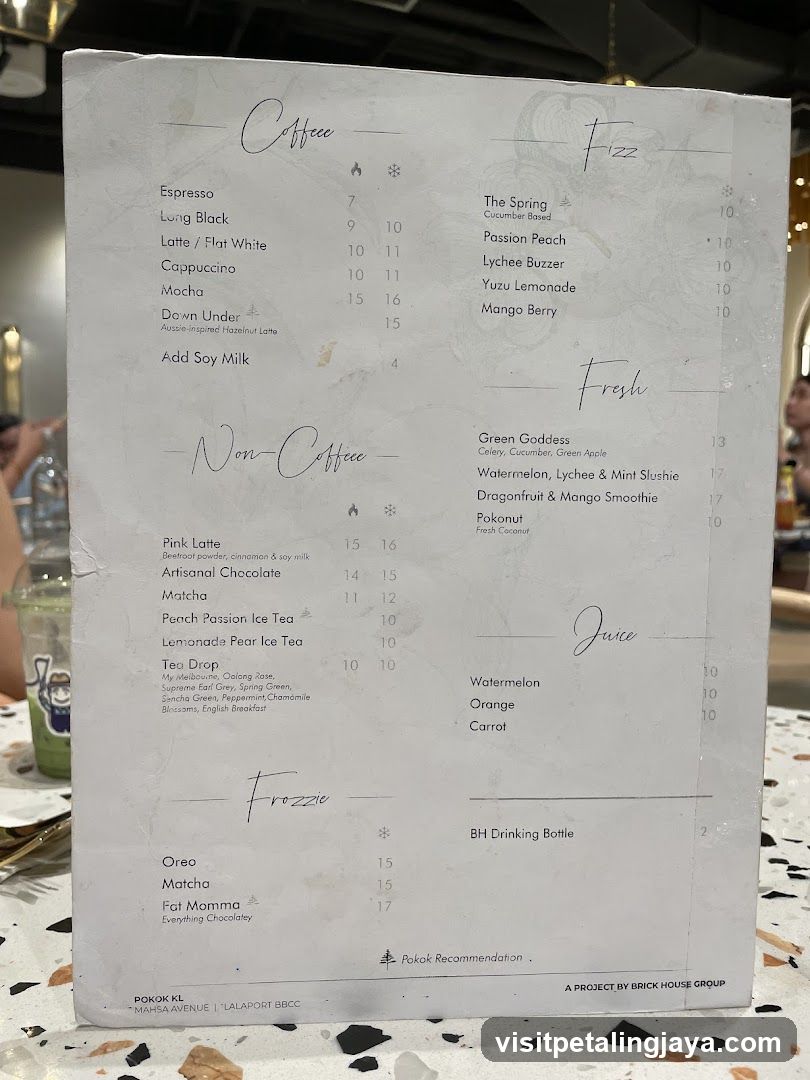 Coffeee
Espresso 7
Long Black 9 10
Latte / Flat White 10 11
Cappuccino 10 11
Mocha 15 16
Down Under 15
Aussie-inspired Hazelnut Latte
Add Soy Milk 4
Non-Coffeee
Pink Latte 15 16
Beetroot powder, cinnamon & soy milk
Artisanal Chocolate 14 15
Matcha 11 12
Peach Passion Ice Tea 10
Lemonade Pear Ice Tea 10
Tea Drop 10 10
My Melbourne, Oolong Rose,
Supreme Earl Grey, Spring Green,
Sencha Green, Peppermint,Chamomile
Blossoms, English Breakfast
Frozzie
Oreo 15
Matcha 15
Fat Momma 17
Everything Chocolatey
Fizz
The Spring 10
Cucumber Based
Passion Peach 10
Lychee Buzzer 10
Yuzu Lemonade 10
Mango Berry 10
Fresh
Green Goddess 13
Celery, Cucumber, Green Apple
Watermelon, Lychee & Mint Slushie 17
Dragonfruit & Mango Smoothie 17
Pokonut 10
Fresh Coconut
Juice
Watermelon 10
Orange 10
Carrot 10
BH Drinking Bottle 2
Pokok Recommendation
POKOK KL
MAHSA AVENUE | LALAPORT BBCC
A PROJECT BY BRICK HOUSE GROUP
visitpetalingjaya.com